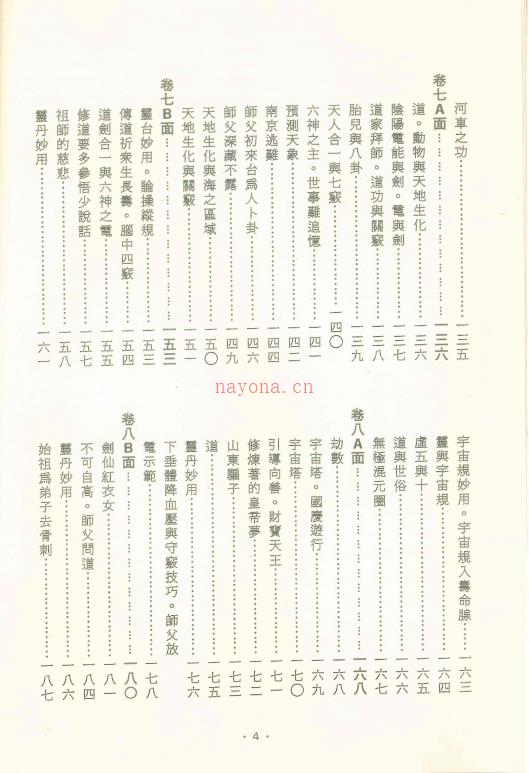 河車之功………一三五
卷七A面………一三六
道。動物與天地生化………一三六
陰陽電能與劍。電與劍………一三七
道家拜師。道功與關竅………一三八
胎兒與八卦………一三九
天人合一與七竅………一四〇
六神之主。世事難追憶………一四一
預測天象………一四二
南京逃難………一四四
師父初來台爲人卜卦………一四六
師父深藏不露………一四九
天地生化與海之區域………一五〇
天地生化與關竅………一五一
卷七B面………一五三
靈台妙用。論操縱規………一五三
傳道祈衆生長壽。腦中四竅………一五四
道劍合一與六神之電………一五五
修道要多參悟少說話………一五七
祖師的慈悲………一五八
靈丹妙用………一六一
宇宙規妙用。宇宙規入壽命腺………一六三
靈與宇宙規………一六四
虛五與十………一六五
道與世俗………一六六
無極混元圈………一六七
卷八A面………一六八
劫數………一六八
宇宙塔。國慶遊行………一六九
宇宙塔………一七〇
引導向善。財寶天王………一七一
修煉著的皇帝夢………一七二
山東騙子………一七三
道………一七五
靈丹妙用………一七六
下垂體降血壓與守竅技巧。師父放
電示範………一七八
卷八B面………一八〇
劍仙紅衣女………一八一
不可自高。師父問道………一八四
靈丹妙用………一八六
始祖爲弟子去骨刺………一八七
·4·
nayona.cn